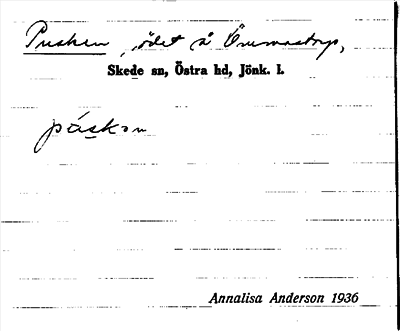 Pusken, ödet å Örumastorp,
Skede sn, Östra hd, Jönk. l.
páskɘn
Annalisa Anderson 1936